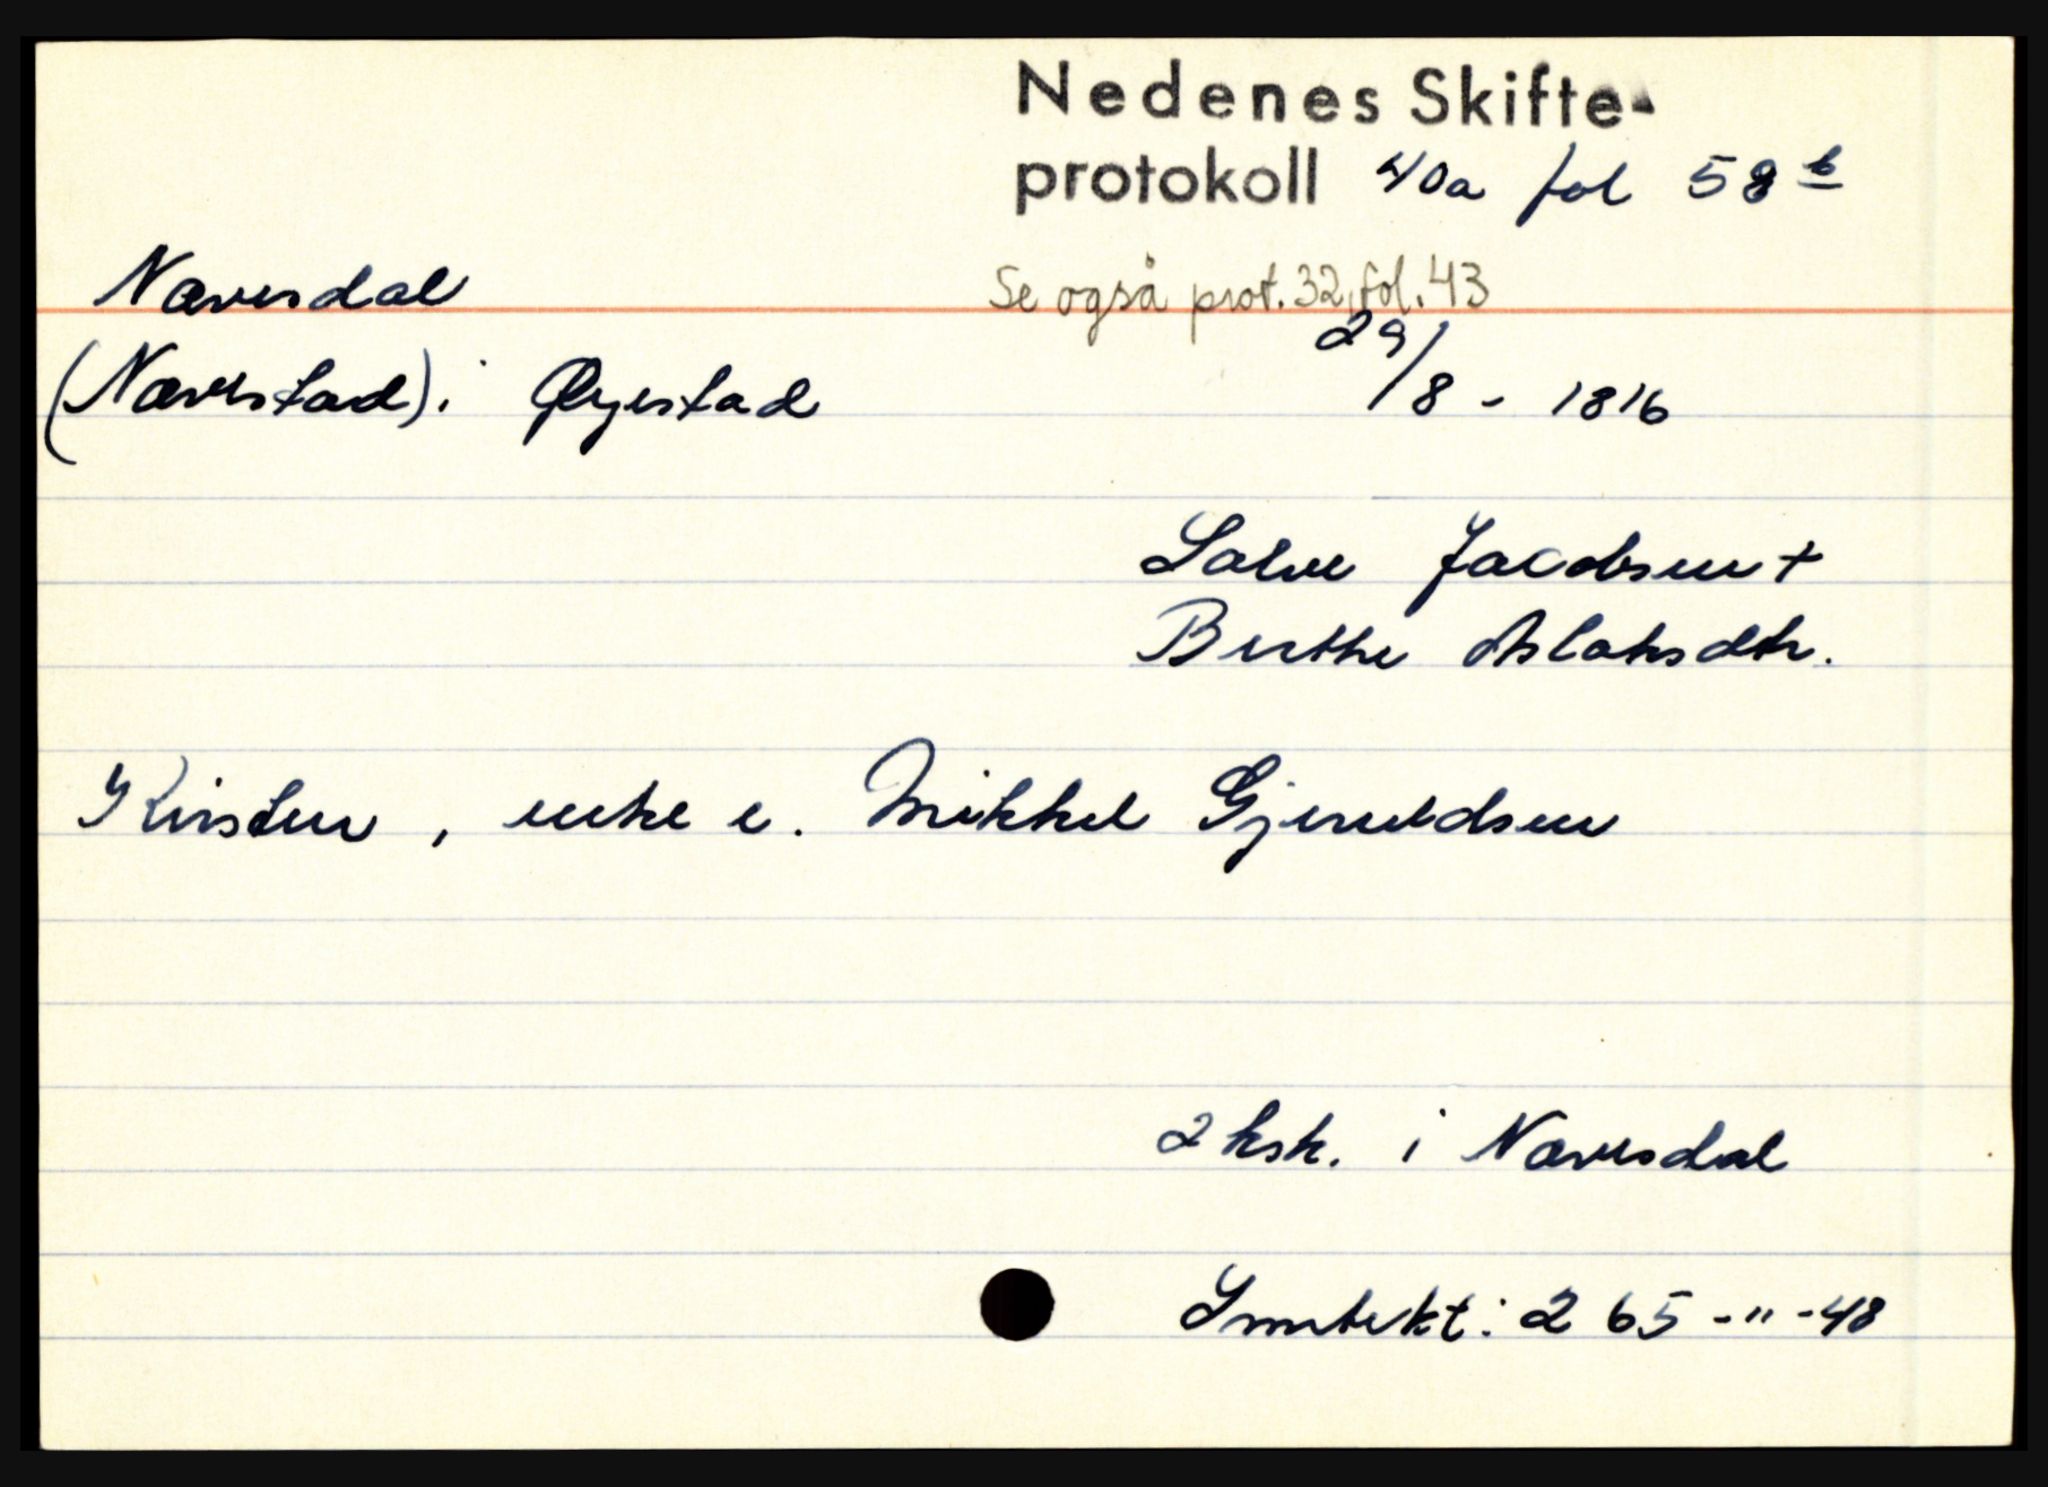 Nedenes Skifte-
protokoll 40a fol 58 b
Næresdal
Se også prot. 32, fol. 43
(Nærestad) i Øyestad
29/8 - 1816
Salve Jacobsen +
Berthe Aslaksdtr.
Kirsten, enke e. Mikkel Gjeruldsen
2 hsk. i Næresdal
Inntekt: 265 -"- 48